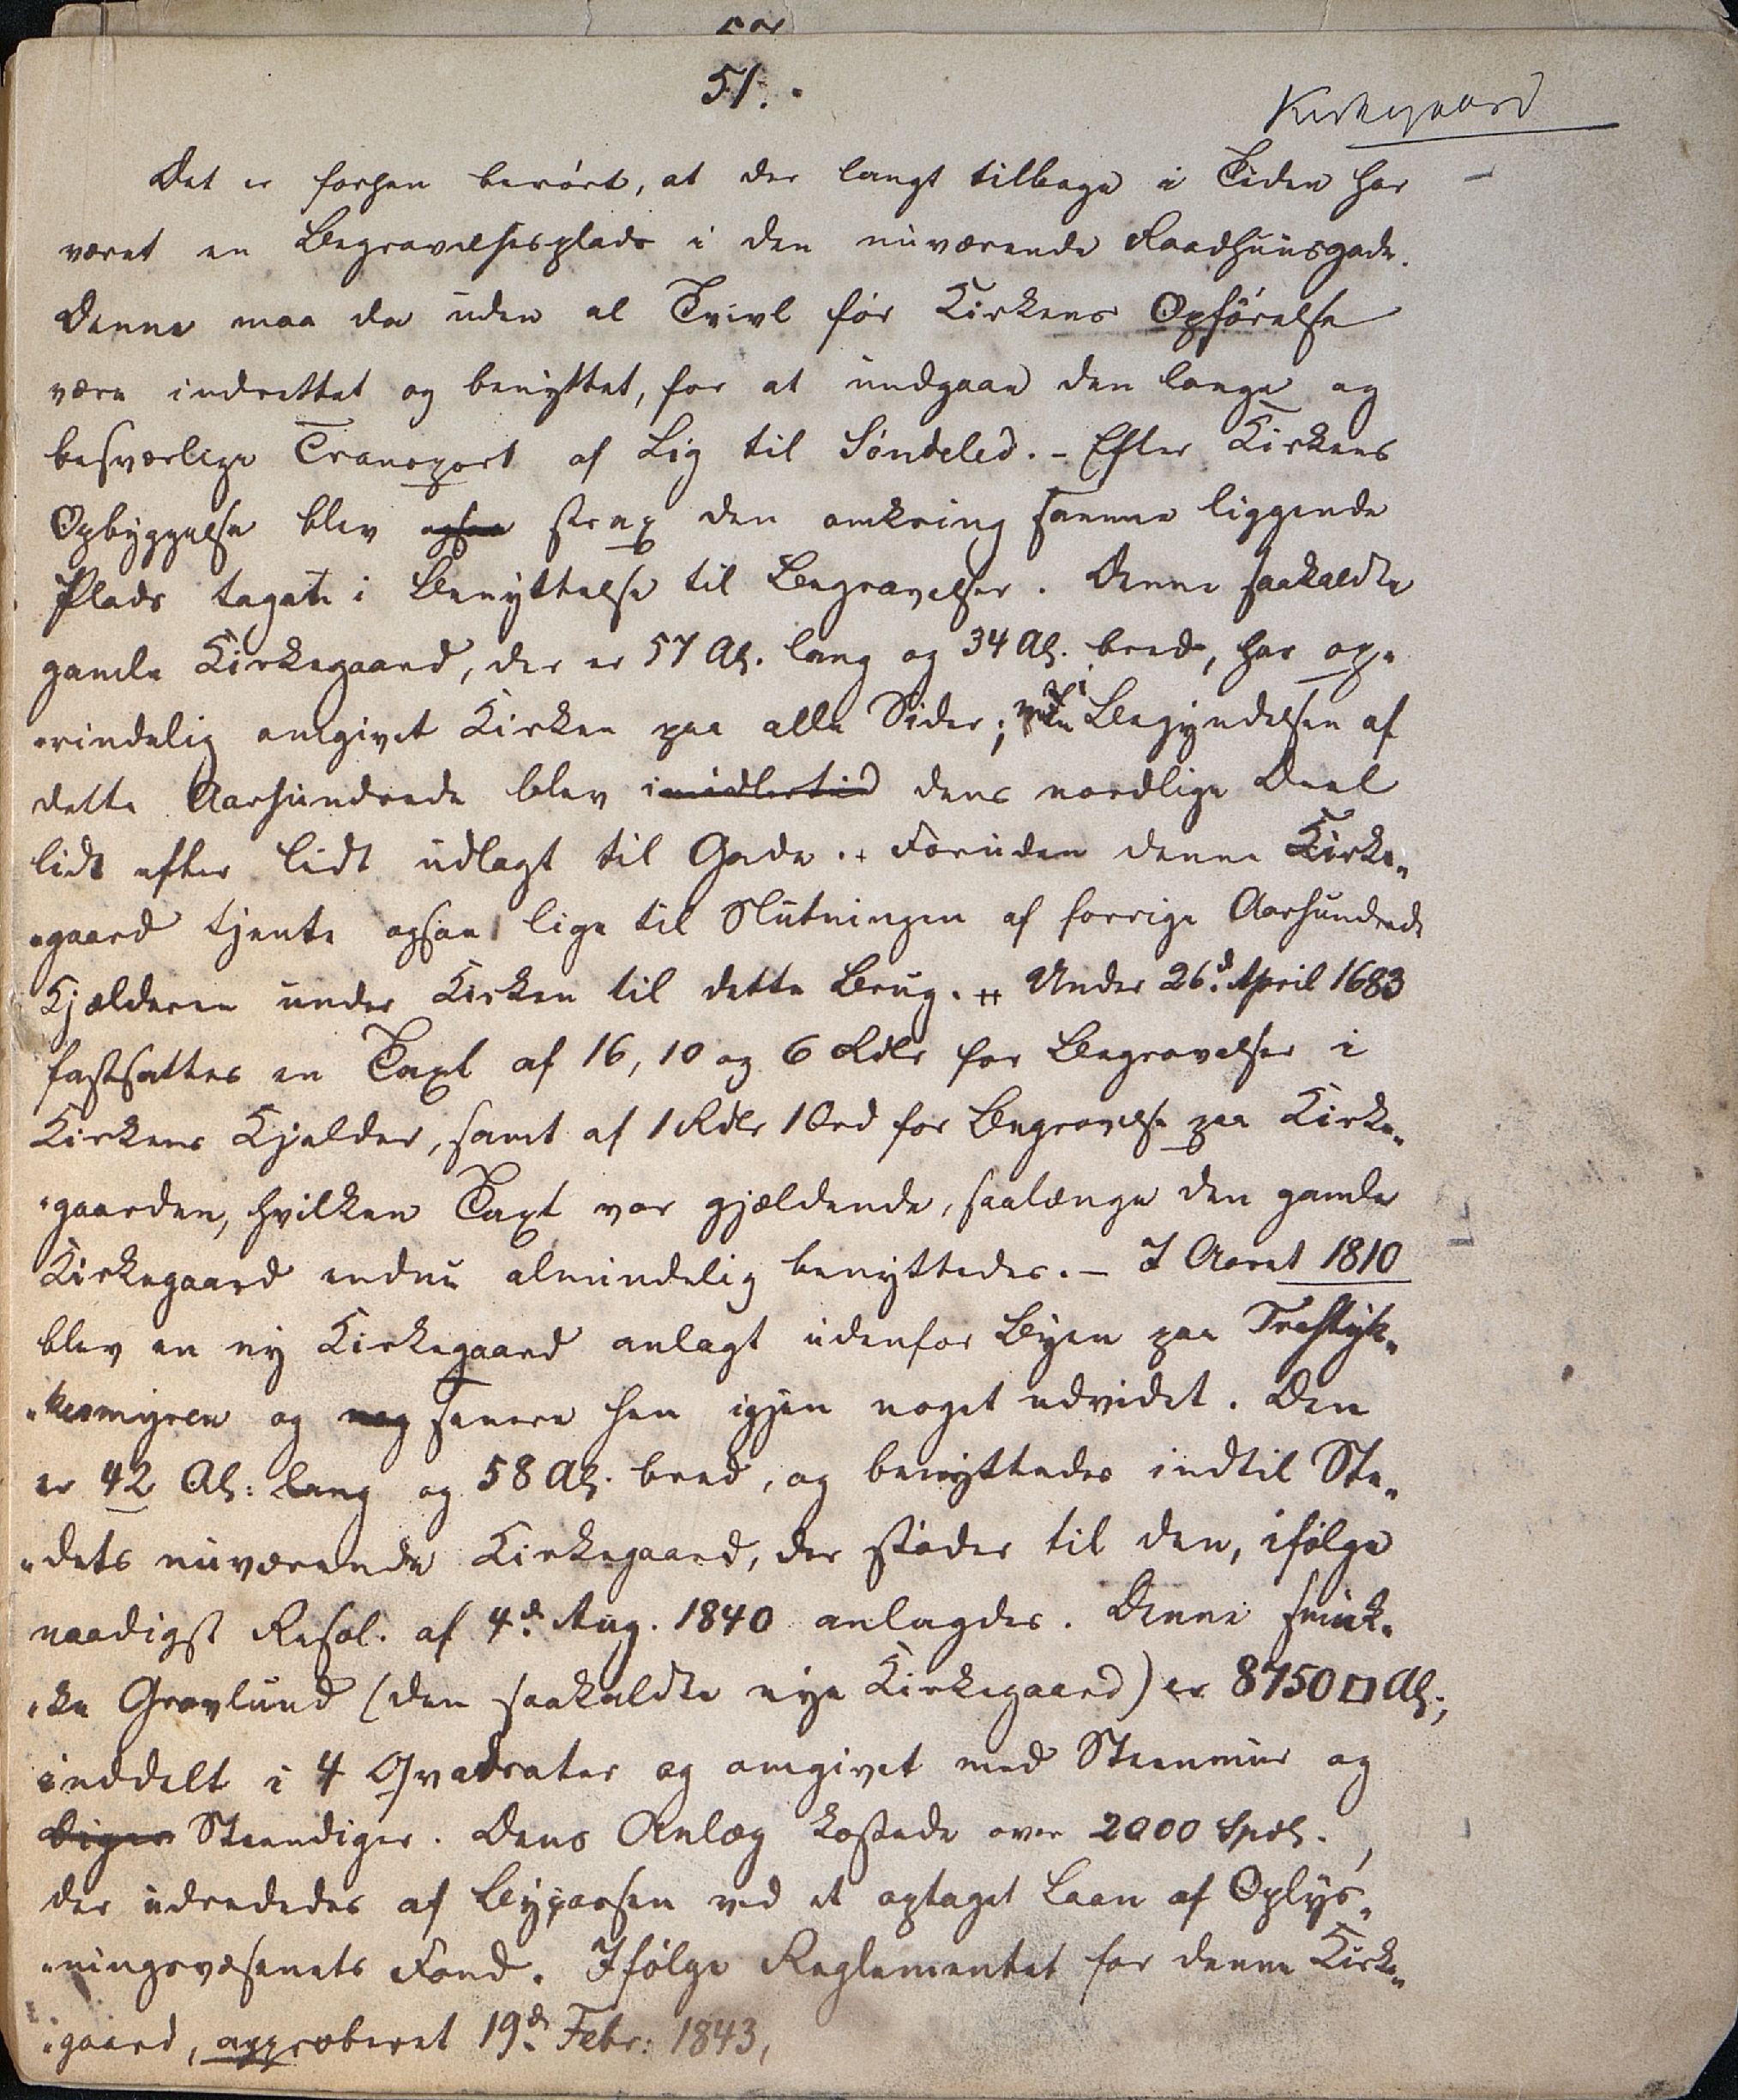 51.
Kirkegaard
Det er forhen berört, at der langt tilbage i Tiden har
været en Begravelsesplads i den nuværende Raadhuusgade.
Denne maa da uden al Tvivl før Kirkens Opförelse
være indrettet og benyttet, for at undgaae den lange og
besværlige Transport af Lig til Söndeled. – Efter Kirkens
Opbyggelse blev ogsaa strax den omkring samme liggende
Plads taget i Benyttelse til Begravelser. Denne saakaldte
gamle Kirkegaard, der er 57 Al. lang og 34 Al. bred, har op„
„rindelig omgivet Kirken paa alle Sider; i Begyndelsen af
dette Aarhundrede blev imidlertid dens nordlige Deel
lidt efter lidt udlagt til Gade. + Foruden denne Kirke„
„gaard tjente ogsaa lige til Slutningen af forrige Aarhundrede
Kjælderen under Kirken til dette Brug. ++ Under 26d. April 1683
fastsattes en Taxt af 16, 10 og 6 Rdlr for Begravelser i
Kirkens Kjelder, samt af 1 Rdlr 1 Ord for Begravelse paa Kirke„
„gaarden, hvilken Taxt var gjældende, saalænge den gamle
Kirkegaard endnu almindelig benyttedes. – I Aaret 1810
blev en ny Kirkegaard anlagt udenfor Byen paa Trestyk„
„kesmyren og nog senere hen igjen noget udvidet. Den
er 42 Al: lang og 58 Al. bred, og benyttedes indtil Ste„
„dets nuværende Kirkegaard, der støder til den, ifölge
naadigst Resol. af 4d. Aug. 1840 anlagdes. Denne smuk„
„ke Gravlund (den saakaldte nye Kirkegaard) er 8750 □ Al.;
inddelt i 4 Qvadrater og omgivet med Steenmur og
Diger Steendiger. Dens Anlæg kostede over 2000 Spdl.,
der udrededes af Bykassen ved et optaget Laan af Oplys„
„ningsvæsenets Fond. Ifölge Reglementet for denne Kirke„
„gaard, approberet 19d. Febr: 1843,